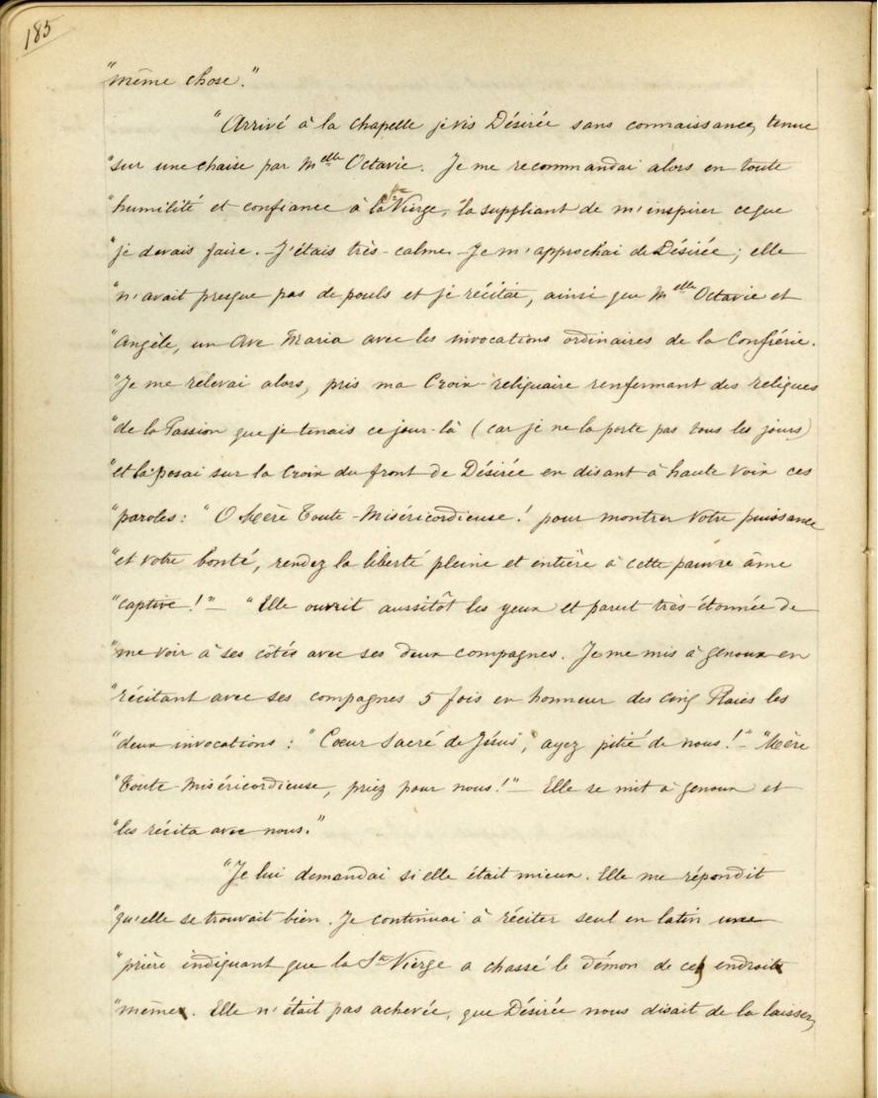 185
"même chose."
"Arrivé à la Chapelle je vis Désirée sans connaissance, tenue
"sur une chaise par Melle Octavie. Je me recommandai alors en toute
"humilité et confiance à la Ste Vierge, la suppliant de m'inspirer ce que
"je devais faire. - J'étais très-calme - Je m'approchai de Désirée ; elle
"n'avait presque pas de pouls et je récitai, ainsi que Melle Octavie et
"Angèle, un Ave Maria avec les invocations ordinaires de la Confrérie.
"Je me relevai alors, pris ma Croix-reliquaire renfermant des reliques
"de la Passion que je tenais ce jour-là (car je ne la porte pas tous les jours)
"et la posai sur la Croix du front de Désirée en disant à haute voix ces
"paroles : "O Mère Toute-Miséricordieuse ! pour montrer votre puissance
"et votre bonté, rendez la liberté pleine et entière à cette pauvre âme
"captive !" _ "Elle ouvrit aussitôt les yeux et parut très-étonnée de
"me voir à ses côtés avec ses deux compagnes. Je me mis à genoux en
"récitant avec ses compagnes 5 fois en honneur des cinq Plaies les
"deux invocations : "Coeur Sacré de Jésus, ayez pitié de nous !" - "Mère
"Toute-Miséricordieuse, priez pour nous !" _ Elle se mit à genoux et
"les récita avec nous."
"Je lui demandai si elle était mieux. Elle me répondit
"qu'elle se trouvait bien. Je continuai à réciter seul en latin une
"prière indiquant que la Ste Vierge a chassé le démon de cet endroit
"même. Elle n'était pas achevée, que Désirée nous disait de la laisser,